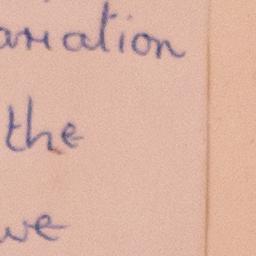 ariation
the
we